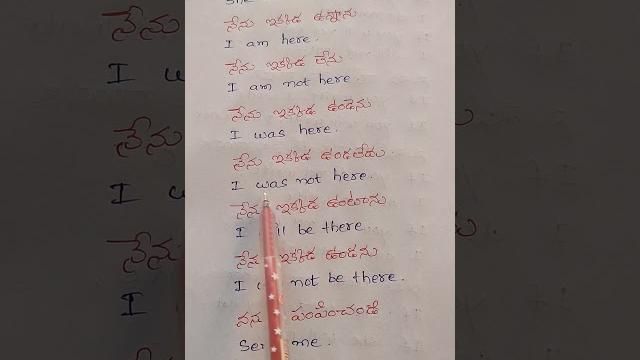 నేను ఇక్కడ ఉన్నాను
I am here.
నేను ఇక్కడ లేను
I am not here.
నేను ఇక్కడ ఉండెను
I was here.
నేను ఇక్కడ ఉండలేదు
I was not here.
నేను ఇక్కడ ఉంటాను
I be there
నేను ఇక్కడ ఉండను
I not be there.
పంపించండి
me.